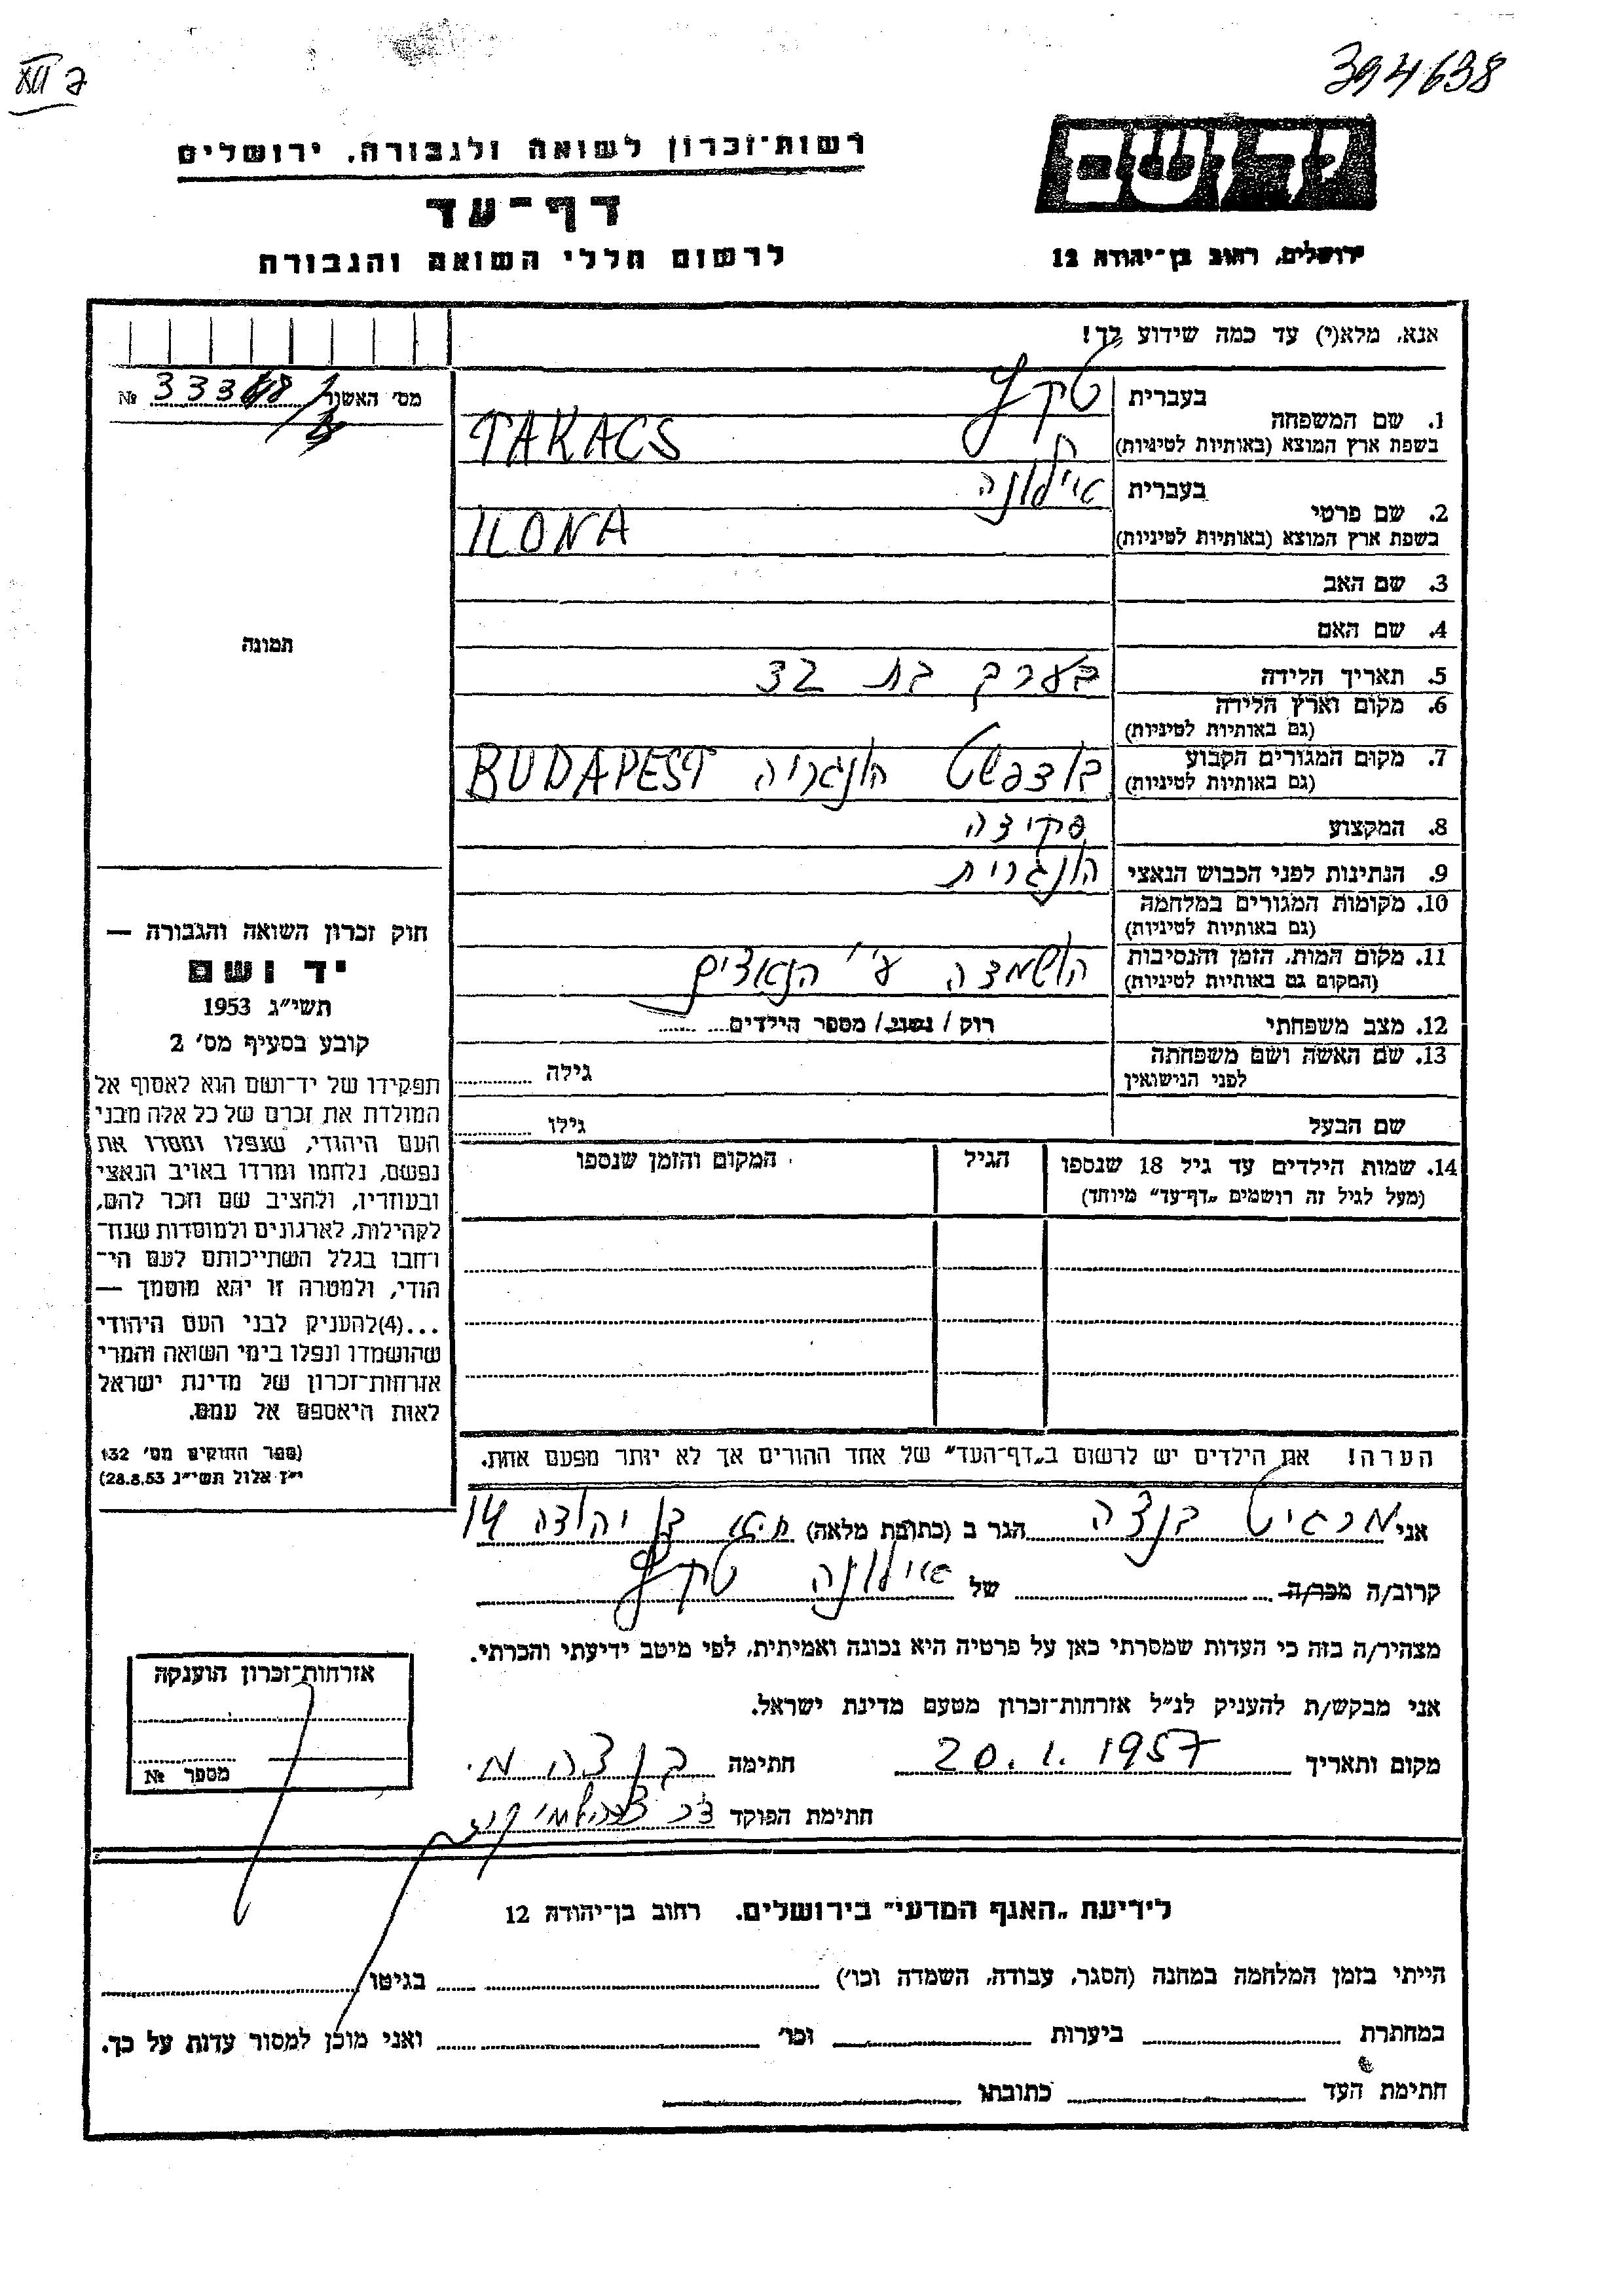 394638
XIII ג
יד ושם
רשות־זכרון לשואה ולגבורה, ירושלים
דף־עד
לרשום חללי השואה והגבורה
ירושלים, רחוב בן־יהודה 12
אנא, מלא(י) עד כמה שידוע לך!
מס' האשור № 333
1. שם המשפחה
בעברית
בשפת ארץ המוצא (באותיות לטיניות) TAKACS
2. שם פרטי
בעברית אילונה
בשפת ארץ המוצא (באותיות לטיניות) ILONA
3. שם האב
4. שם האם
תמונה
5. תאריך הלידה בערך בת 32
6. מקום וארץ הלידה
(גם באותיות לטיניות)
7. מקום המגורים הקבוע בודפשט הונגריה BUDAPEST
(גם באותיות לטיניות)
8. המקצוע פקידה
9. הנתינות לפני הכבוש הנאצי הונגרית
10. מקומות המגורים במלחמה
(גם באותיות לטיניות)
11. מקום המות, הזמן והנסיבות הושמדה ע"י הנאצים
(המקום גם באותיות לטיניות)
12. מצב משפחתי רוק / נשוי / מספר הילדים
13. שם האשה ושם משפחתה גילה
לפני הנישואין
שם הבעל גילו
14. שמות הילדים עד גיל 18 שנספו הגיל המקום והזמן שנספו
(מעל לגיל זה רושמים „דף־עד" מיוחד)
חוק זכרון השואה והגבורה —
יד ושם
תשי"ג 1953
קובע בסעיף מס' 2
תפקידו של יד־ושם הוא לאסוף אל
המולדת את זכרם של כל אלה מבני
העם היהודי, שנפלו ומסרו את
נפשם, נלחמו ומרדו באויב הנאצי
ובעוזריו, ולהציב שם וזכר להם,
לקהילות, לארגונים ולמוסדות שנח־
רחבו בגלל השתייכותם לעם הי־
הודי, ולמטרה זו יהא מוסמך —
...(4)להעניק לבני העם היהודי
שהושמדו ונפלו בימי השואה והמרי
אזרחות־זכרון של מדינת ישראל
לאות היאספם אל עמם.
(ספר החוקים מס' 132
י"ז אלול תשי"ג 28.8.53)
הערה! את הילדים יש לרשום ב„דף־העד" של אחד ההורים אך לא יותר מפעם אחת.
אני מרגיט בנצה הגר ב (כתובת מלאה) בן יהודה 14
קרוב/ה מכר/ה של אילונה
מצהיר/ה בזה כי העדות שמסרתי כאן על פרטיה היא נכונה ואמיתית, לפי מיטב ידיעתי והכרתי.
אני מבקש/ת להעניק לנ"ל אזרחות־זכרון מטעם מדינת ישראל.
מקום ותאריך 20.1.1957 חתימה בנצה מ.
חתימת הפוקד
אזרחות־זכרון הוענקה
מספר №
לידיעת „האגף המדעי" בירושלים. רחוב בן־יהודה 12
הייתי בזמן המלחמה במחנה (הסגר, עבודה, השמדה וכו') בגיטו
במחתרת ביערות וכו' ואני מוכן למסור עדות על כך.
חתימת העד כתובתו